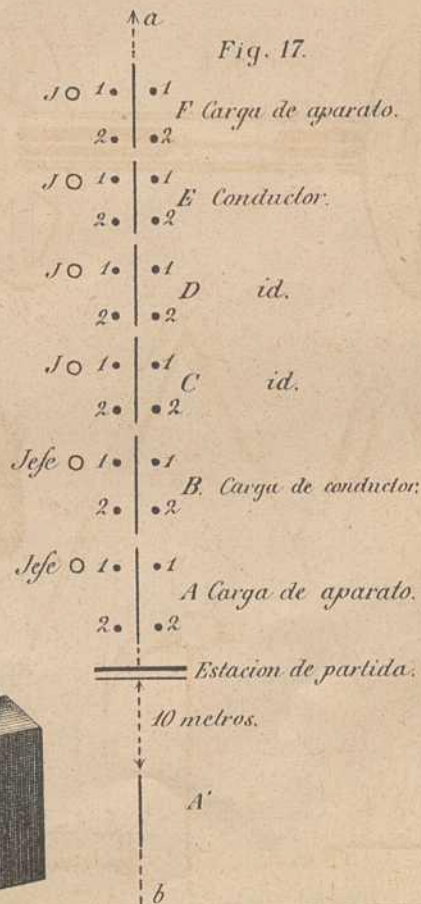 a
Fig. 17.
J 1 1
F Carga de aparato.
2 2
J 1 1
E Conductor.
2 2
J 1 1
D id.
2 2
J 1 1
C id.
2 2
Jefe 1 1
B. Carga de conductor.
2 2
Jefe 1 1
A Carga de aparato.
2 2
Estacion de partida.
10 metros.
A'
b